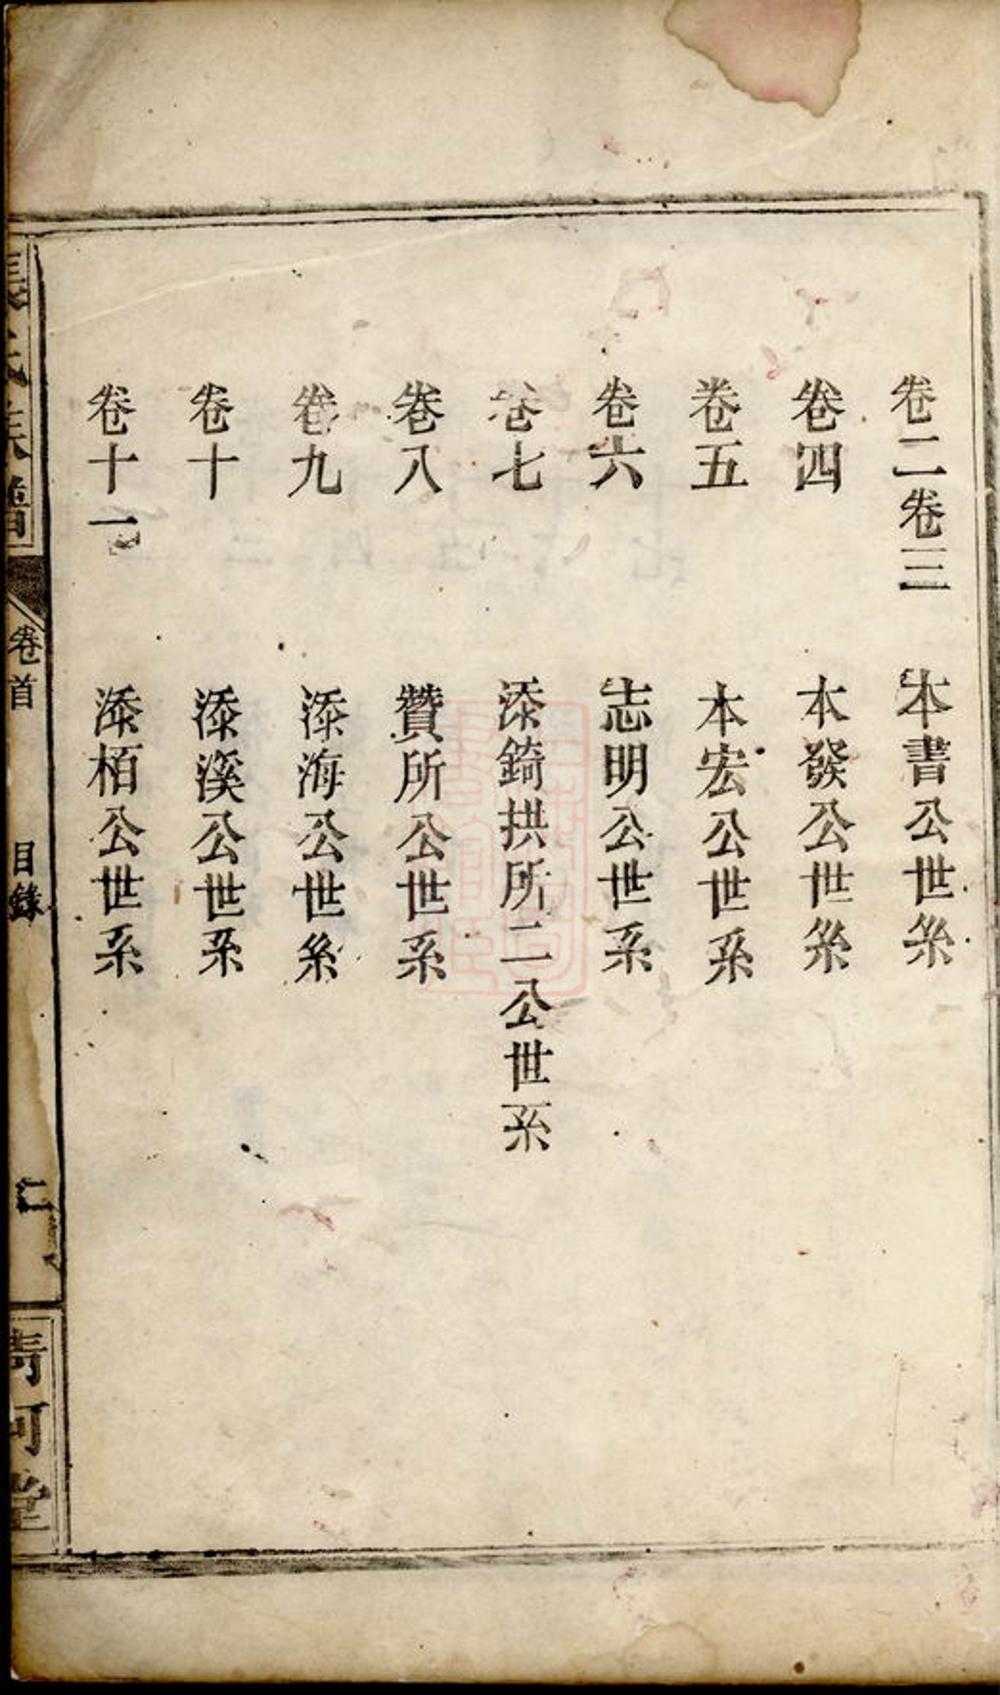 卷二卷三 本書公世系
卷四 本發公世系
卷五 本宏公世系
卷六 志明公世系
卷七 添錡拱所二公世系
卷八 贊所公世系
卷九 添海公世系
卷十 添溪公世系
卷十一 添栢公世系
張氏族譜 卷首 目錄 二 清河堂